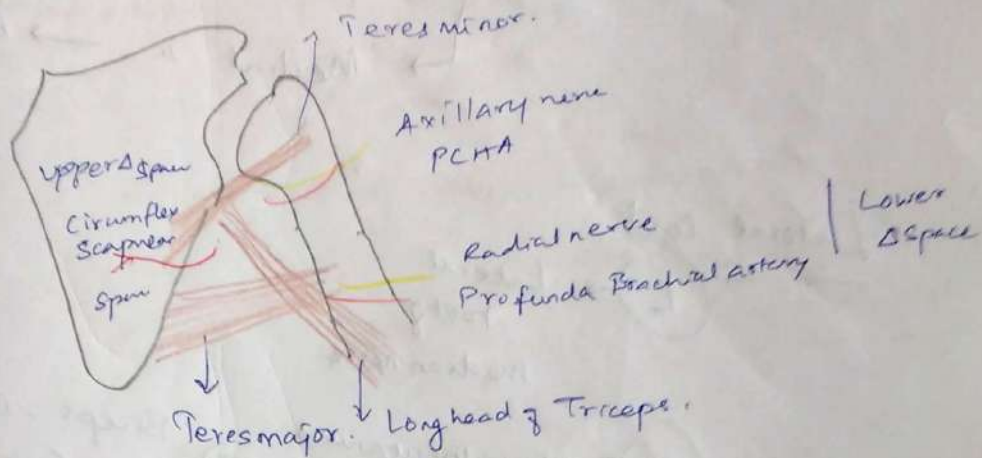 Teres minor.
Axillary nerve
PCHA
Upper Δ space
Circumflex
Scapular
Space
Radial nerve
Profunda Brachial artery
Lower
Δ space
Teres major. Long head of Triceps.